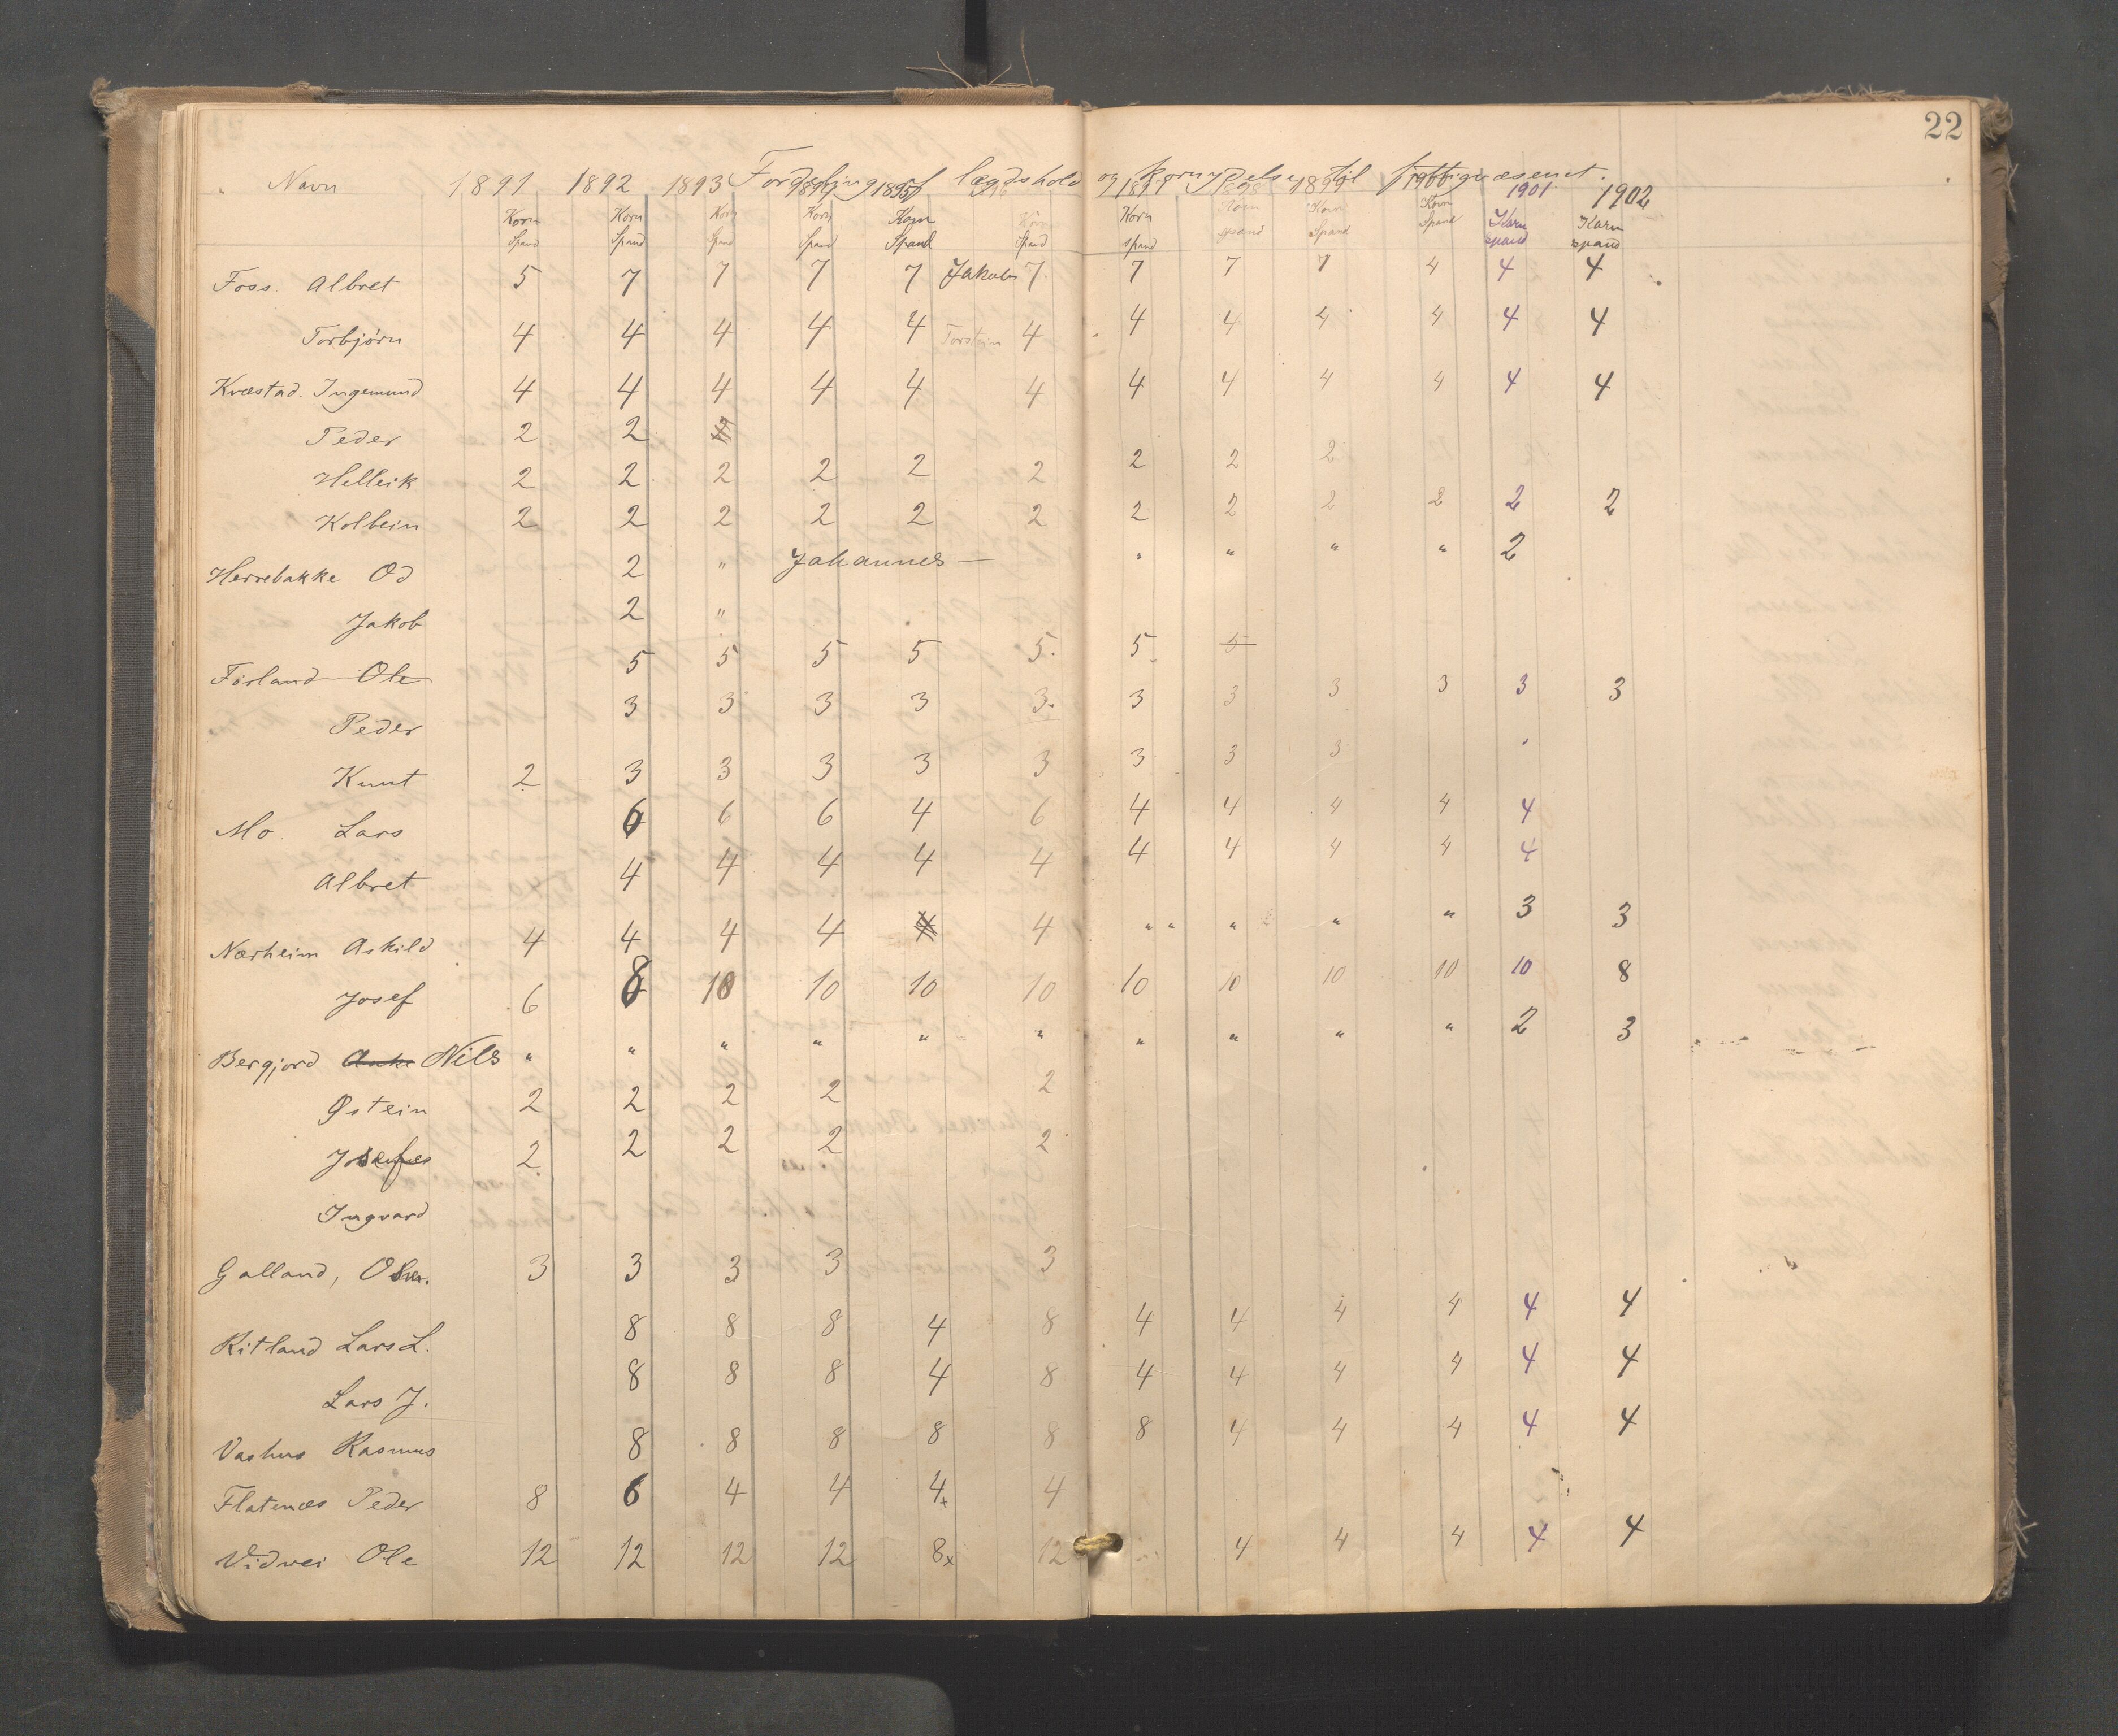 22
Fordeling af lægdshold og kornydelse til fattigvæsenet.
Navn 1891 1892 1893 1894 1895 1896 1897 1898 1899 1900 1901 1902
Korn Korn Korn Korn Korn Korn Korn Korn Korn Korn Korn Korn
Spand Spand Spand Spand Spand Spand Spand Spand Spand Spand Spand Spand
Foss Albret 5 7 7 7 7 Jakob 7. 7 7 7 4 4 4
Torbjørn 4 4 4 4 4 Torstein 4 4 4 4 4 4 4
Kvæstad. Ingemund 4 4 4 4 4 4 4 4 4 4 4 4
Peder 2 2
Helleik 2 2 2 2 2 2 2 2 2
Kolbein 2 2 2 2 2 2 2 2 2 2 2 2
Herrebakke Od 2 " Johannes — " " " " 2
Jakob 2 "
Førland Ole 5 5 5 5 5. 5 5
Peder 3 3 3 3 3. 3 3 3 3 3 3
Knut 2 3 3 3 3 3 3 3 3
Mo Lars 6 6 6 4 6 4 4 4 4 4
Albret 4 4 4 4 4 4 4 4 4 4
Nærheim Askild 4 4 4 4 4 4 " " " " " 3 3
Josef 6 8 10 10 10 10 10 10 10 10 10 8
Bergjord Nils " " " " " " " " " " 2 3
Østein 2 2 2 2 2
Josef 2 2 2 2 2
Ingvard
Galland, 3 3 3 3 3
Ritland Lars L. 8 8 8 4 8 4 4 4 4 4 4
Lars J. 8 8 8 4 8 4 4 4 4 4 4
Vashus Rasmus 8 8 8 8 8 8 4 4 4 4 4
Flatenæs Peder 8 6 4 4 4x 4
Vidvei Ole 12 12 12 12 8x 12 4 4 4 4 4